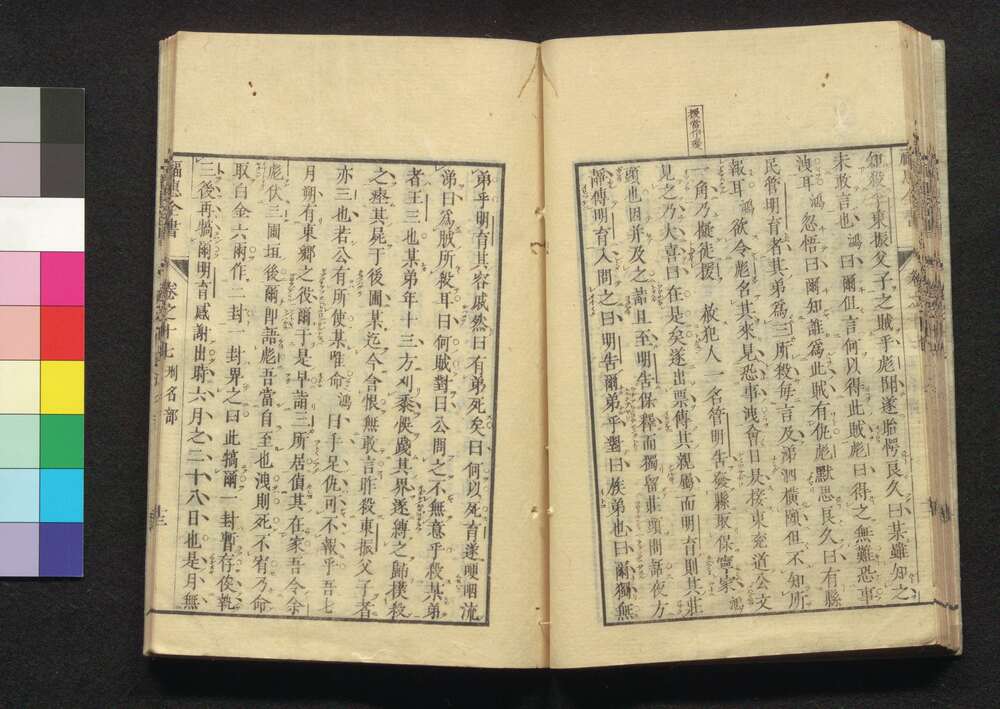 援當作爰
知殺李東振父子之賊乎彪聞遂胎愕良久曰某雖知之
未敢言也鴻曰爾但言何以得此賊彪曰得之無難恐事
洩耳鴻忽悟曰爾知誰爲此賊有仇彪默思良久曰有縣
民管明育者其弟爲三所殺每言及涕泗橫頤但不知所
報耳鴻欲令彪名其來見恐事洩會日是接東兗道公文
一角乃擬徒援 赦犯人一名管明吿發縣取保寧家鴻
見之乃大喜曰在是矣遂出票傳其親屬而明育則其莊
頭也因并及之詣且至明吿保釋而獨留莊頭問話夜方
譁傳明育入問之曰明吿爾弟乎對曰族弟也曰爾獨無
弟乎明育其容戚然曰有弟死矣曰何以死育遂哽咽流
涕曰爲賊所殺耳曰何賊對曰公問之不無意乎殺某弟
者王三也某弟年十三方刈黍俟歲其界遂縛之歸撲殺
之瘞其屍于後圃某迄今含恨無敢言昨殺東振父子者
亦三也若公有所使某唯命鴻曰手足仇可不報乎吾七
月朔有東鄉之役爾于是早詣三所居偵其在家吾令余
彪伏三圃垣後爾卽語彪吾當自至也洩則死不宥乃命
取白金六兩作二封一封畀之曰此犒爾一封暫存俟執
三後再犒爾明育感謝出時六月之二十八日也是月無
福惠全書 卷之十七 刑名部